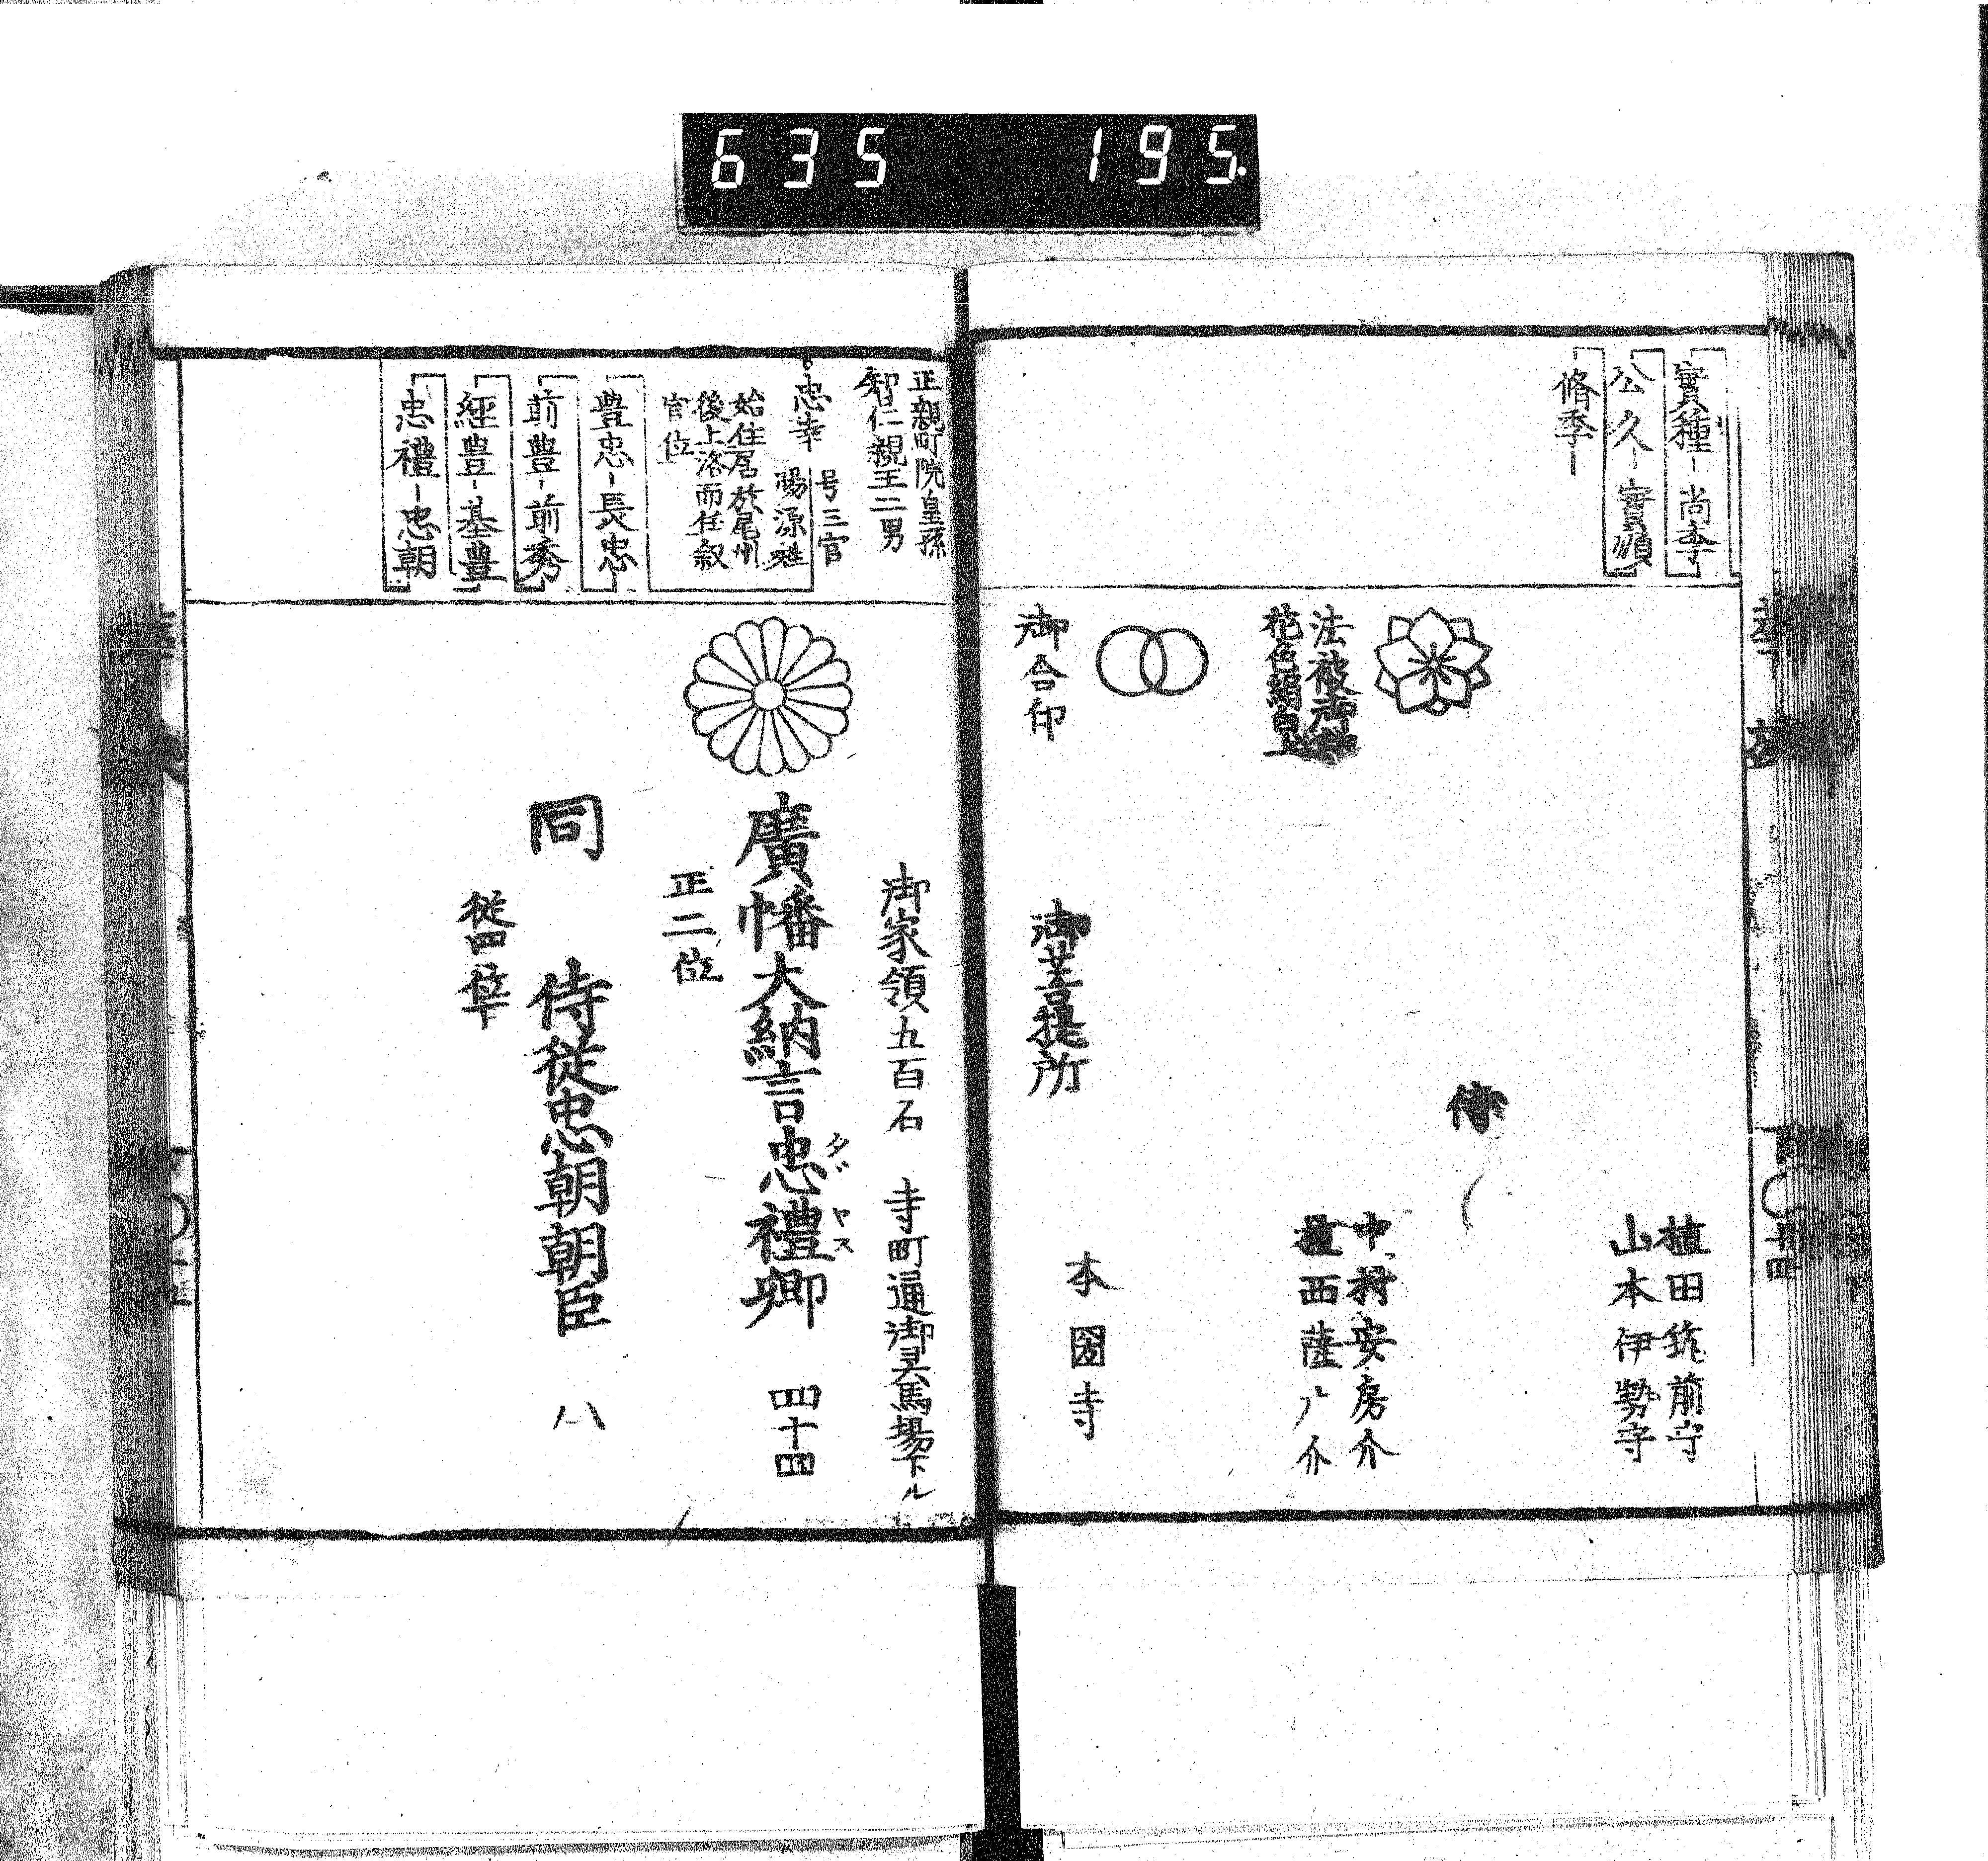 635 195.
實種-尚季
公久-實順
脩季-
法被御紋
花色絹白上
御合印
植田筑前守
山本伊勢守
侍
中村安房介
葛西薩广介
御菩提所
本圀寺
正親町院皇孫
智仁親王二男
忠幸
号三宮
賜源姓
始住居於尾州
後上洛而任叙
官位
豊忠-長忠
前豊-前秀
經豊-基豊
忠禮-忠朝
御家領五百石 寺町通御具馬場下ル
廣幡大納言忠禮卿 四十四
タヾ ヤス
正二位
同 侍從忠朝朝臣 八
從四位下